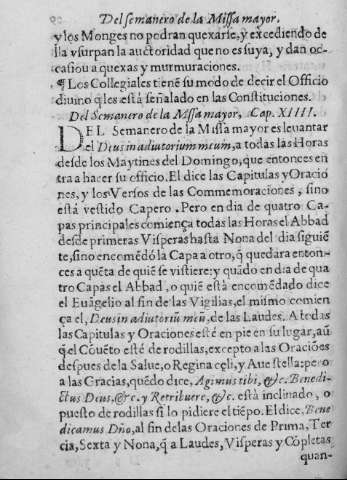 Del semanero de la Missa mayor,
y los Monges no pedran quexarse, y excediendo de
lla vsurpan la auctoridad que no es suya, y dan oc
casiou a quexas y murmuraciones.
¶ Los Collegiales tienẽ su modo de decir el Officio
diuino q̃ les està señalado en las Constituciones.
Del Semanero de la Missa mayor, Cap. XIIII.
DEL Semanero de la Missa mayor es leuantar
el Deus in adiutorium meum, a todas las Horas
desde los Maytines del Domingo, que entonces en
tra a hacer su officio. El dice las Capitulas y Oracio
nes, y los Versos de las Commemoraciones, sino
està vestido Capero. Pero en dia de quatro Ca-
pas principales comiença todas las Horas el Abbad
desde primeras Visperas hasta Nona del dia siguiẽ
te, sino encomẽdò la Capa a otro, q̃ quedara enton-
ces a quẽta de quiẽ se vistiere: y quãdo en dia de qua
tro Capas el Abbad, o quiẽ està encomẽdado dice
el Euãgelio al fin de las Vigilias, el mismo comien
ça el, Deus in adiutoriũ meũ, de las Laudes. A todas
las Capitulas y Oraciones estè en pie en su lugar, aũ
q̃ el Cõuẽto estè de rodillas, excepto a las Oraciões
despues de la Salue, o Regina cęli, y Aue stella: pero
a las Gracias, quẽdo dice, Agimus tibi, &c. Benedi-
ctus Deus, &c. y Retribuere, &c. està inclinado, o
puesto de rodillas si lo pidiere el tiẽpo. El dice, Bene
dicamus Dño, al fin de las Oraciones de Prima, Ter
cia, Sexta y Nona, q̃ a Laudes, Visperas y Cõpletas
quan-